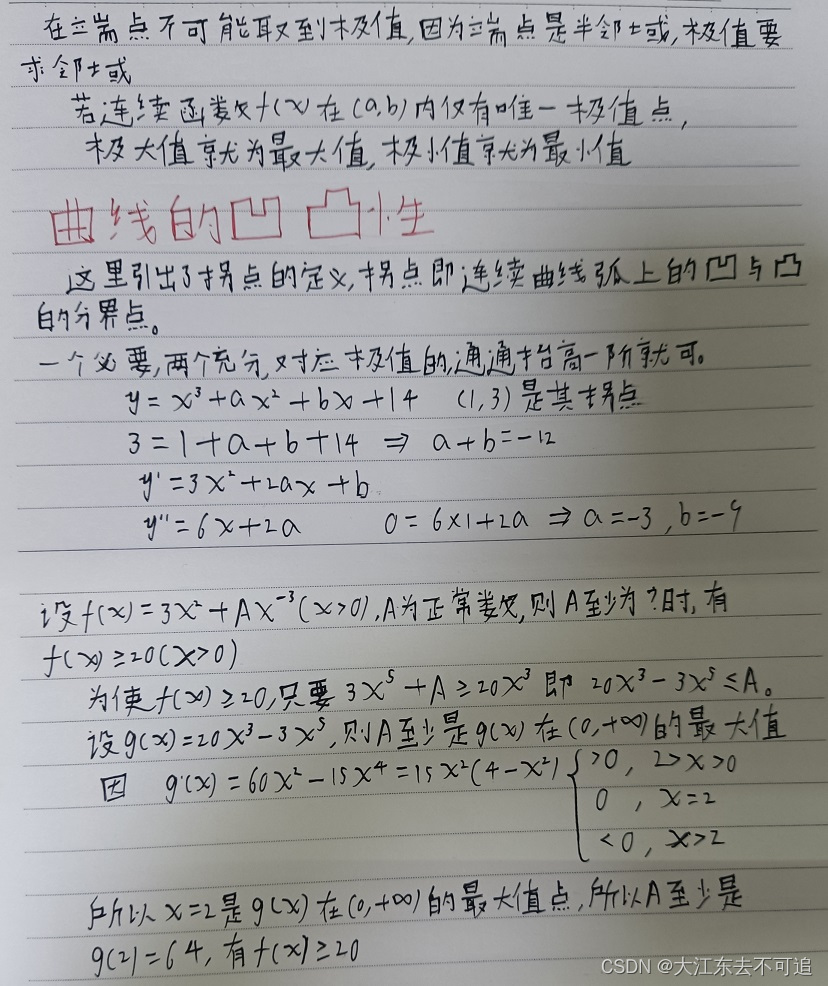 在端点不可能取到极值,因为端点是半邻域,极值要
求邻域
若连续函数f(x)在(a,b)内仅有唯一极值点,
极大值就为最大值,极小值就为最小值
曲线的凹凸性
这里引出了拐点的定义,拐点即连续曲线弧上的凹与凸
的分界点。
一个必要,两个充分,对应极值的,通通抬高一阶就可。
y=x³+ax²+bx+14 (1,3)是其拐点
3=1+a+b+14 ⇒ a+b=-12
y'=3x²+2ax+b
y''=6x+2a 0=6×1+2a ⇒ a=-3,b=-9
设f(x)=3x²+Ax⁻³(x>0),A为正常数,则A至少为?时,有
f(x)≥20(x>0)
为使f(x)≥20,只要3x⁵+A≥20x³即20x³-3x⁵≤A。
设g(x)=20x³-3x⁵,则A至少是g(x)在(0,+∞)的最大值
因 g'(x)=60x²-15x⁴=15x²(4-x²) { >0, 2>x>0
0, x=2
<0, x>2
所以x=2是g(x)在(0,+∞)的最大值点,所以A至少是
g(2)=64,有f(x)≥20
CSDN @大江东去不可追